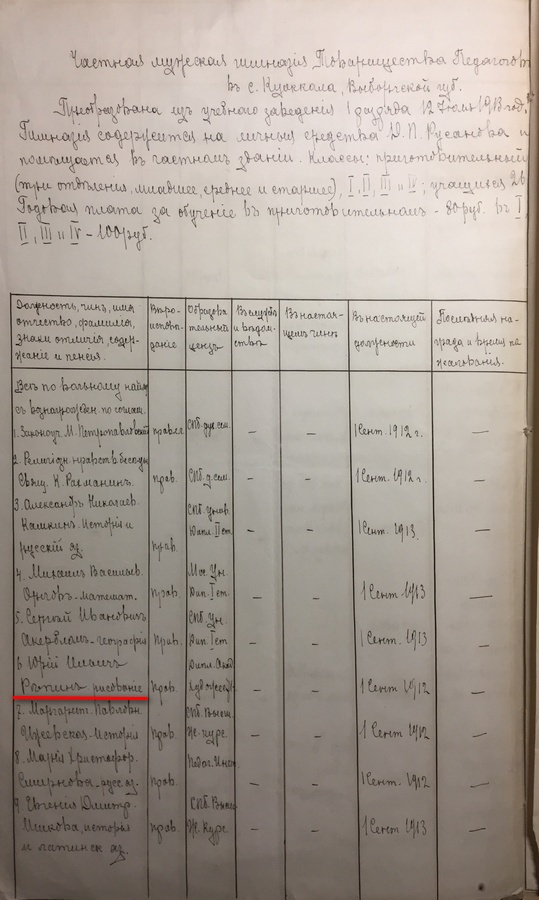 Частная мужская гимназія Товарищества Педагогов
въ с. Куоккала, Выборгской губ.
Преобразована изъ учебнаго заведенія 1 разряда 12 Іюля 1913 год.
Гимназія содержится на личныя средства Д. П. Русанова и
помѣщается въ частномъ зданіи. Классы: приготовительный
(три отдѣленія младшее, среднее и старшее), I, II, III и IV; учащихся 26
Годовая плата за обученіе въ приготовительномъ - 80 руб. въ I,
II, III и IV - 100 руб.
Должность, чинъ, имя Вѣро- Образова Въ службѣ Въ настоя- Въ настоящей Послѣдняя на-
отчество, фамилія, исповѣ- тельный и вѣдом- щемъ чинѣ должности града и время по
знаки отличія, содер- даніе цензъ ствѣ жалованія.
жаніе и пенсія.
Всѣ по вольному найму
съ вознагражден. по соглаш.
1. Законоуч. М. Петропавловскій правсл. СПб. дух. сем. — — 1 Сент. 1912 г. —
2. Религіозн. нравств. бесѣды
Свящ. Н. Рахманинъ. прав. СПб. д. сем. — — 1 Сент. 1912 г. —
3. Александръ Николаев. СПб. Унив.
Кашкинъ. Исторія и Дипл. II ст. — — 1 Сент. 1913. —
русскій яз. прав.
4. Михаилъ Васильев. Мос. Ун.
математ. прав. Дип. I ст. — — 1 Сент. 1913 —
5. Сергѣй Ивановичъ СПб. Ун.
Акерблом - географія прав. Дип. I ст. — — 1 Сент. 1913 —
6. Юрій Ильичъ Дипл. Акад.
Рѣпинъ рисованіе прав. — — 1 Сент. 1912 —
7. Маргарит. Павловн. СПб. Высш.
Исторія прав. Ж. курс. — — 1 Сент. 1912 —
8. Марія Христофор. Педаг. Инст.
Смирнова - русс. яз. прав. — — 1 Сент. 1912 —
9. Евгенія Дмитр. СПб. Высш.
исторія прав. Ж. Курс. — — 1 Сент. 1913 —
и латинск. яз.